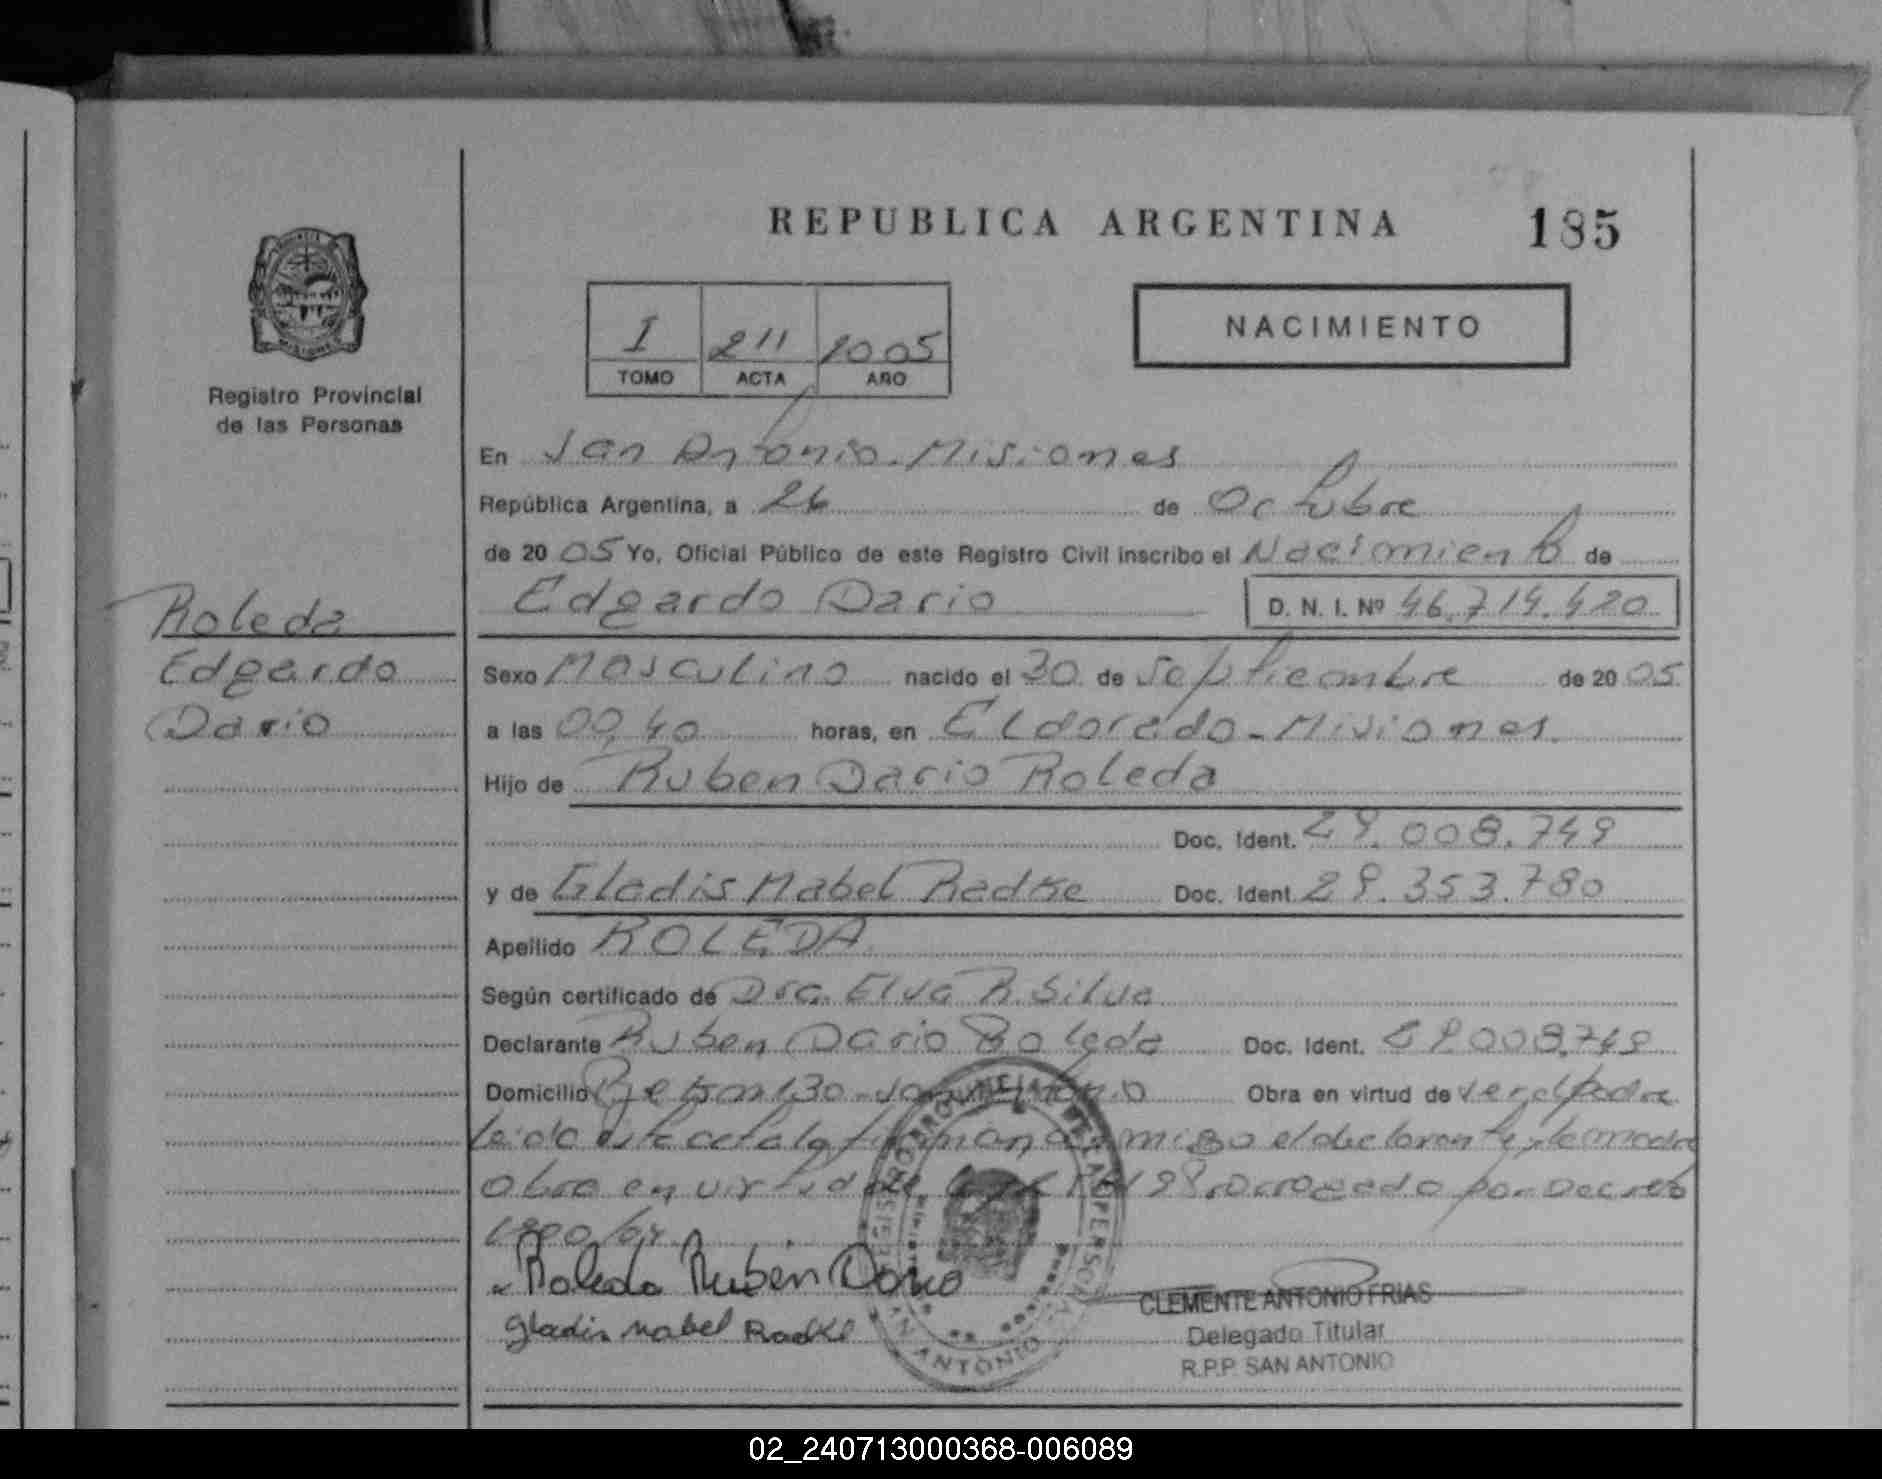 REPUBLICA ARGENTINA 185
I 211 2005
TOMO ACTA AÑO
NACIMIENTO
Registro Provincial
de las Personas
En San Antonio - Misiones
República Argentina, a 26 de Octubre
de 20 05 Yo, Oficial Público de este Registro Civil inscribo el Nacimiento de
Edgardo Dario D. N. I. Nº 46.714.420
Roleda
Edgardo
Dario
Sexo Masculino nacido el 30 de Septiembre de 20 05
a las 00,40 horas, en Eldorado - Misiones.
Hijo de Ruben Dario Roleda
Doc. Ident. 29.008.749
y de Gladis Mabel Radke Doc. Ident. 29.353.780
Apellido ROLEDA
Según certificado de Dra. Elva R. Silva
Declarante Ruben Dario Roleda Doc. Ident. 29.008.749
Domicilio 130 - San Antonio Obra en virtud de ser el padre
leida este acta la firman conmigo el declarante y la madre
obra en virtud de prorrogado por Decreto
Roleda Ruben Dario
Gladis Mabel Radke
REGISTRO PROVINCIAL DE LAS PERSONAS
SAN ANTONIO
CLEMENTE ANTONIO FRIAS
Delegado Titular
R.P.P. SAN ANTONIO
02_240713000368-006089